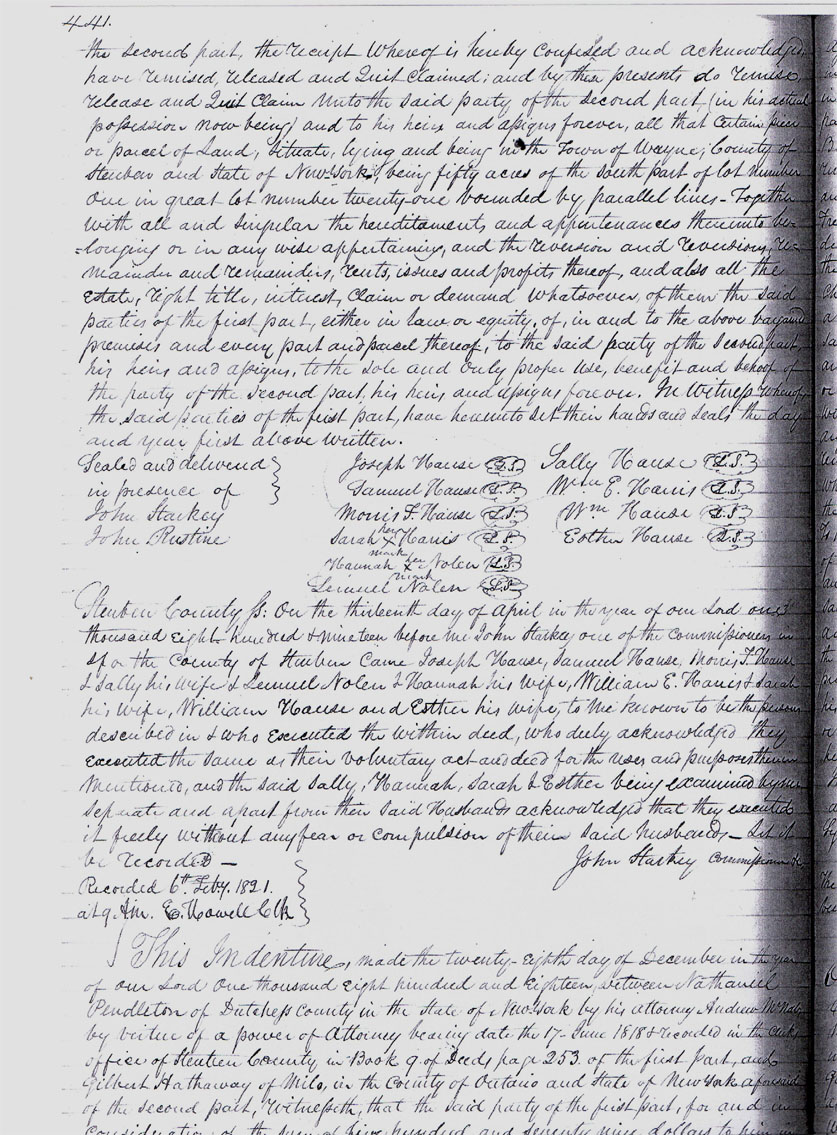 441.
the second part, the receipt Whereof is hereby Confessed and acknowledged
have remised, released and Quit Claimed; and by these presents do remise,
release and Quit Claim Unto the said party of the second part, (in his actual
possession now being) and to his heirs and assigns forever, all that Certain piece
or parcel of Land, Situate, lying and being in the Town of Wayne, County of
Steuben and State of New-York, being fifty acres of the south part of lot number
One in great lot number twenty-one bounded by parallel lines - Together
With all and singular the hereditaments and appurtenances thereunto be-
=longing or in any wise appertaining, and the reversion and reversions, re-
mainder and remainders, rents, issues and profits thereof, and also all the
Estate, right title, interest, Claim or demand Whatsoever, of them the said
parties of the first part, either in law or equity, of, in and to the above bargained
premises and every part and parcel thereof, to the said party of the second part
his heirs and assigns, to the sole and only proper use, benefit and behoof of
the party of the second part, his heirs and assigns forever. In Witness Whereof
the said parties of the first part, have hereunto set their hands and seals the day
and year first above written.
Sealed and delivered Joseph Hause L.S. Sally Hause L.S.
in presence of Samuel Hause L.S. Wm E. Harris L.S.
John Starkey Morris F. Hause L.S. Wm Hause L.S.
John Rustine Sarah her x mark Harris L.S. Esther Hause L.S.
Hannah her x mark Nolen L.S.
Lemuel Nolen L.S.
Steuben County Ss: On the thirteenth day of April in the year of our Lord one
thousand Eight hundred & nineteen before me John Starkey one of the Commissioners in
& for the County of Steuben Came Joseph Hause, Samuel Hause, Morris F. Hause
& Sally his wife & Lemuel Nolen & Hannah his Wife, William E. Harris & Sarah
his Wife, William Hause and Esther his wife, to me known to be the persons
described in & who Executed the within deed, who duly acknowledged they
executed the same as their voluntary act and deed for the uses and purposes therein
Mentioned, and the said Sally, Hannah, Sarah & Esther being examined by me
seperate and apart from their said Husbands acknowledged that they executed
it freely without any fear or compulsion of their said husbands - Let it
be recorded - John Starkey Commissioner &c
Recorded 6th Feby. 1821.
at 9 A.m. E. Howell Clk
This Indenture, made the twenty-Eighth day of December in the year
of our Lord One thousand Eight hundred and Eighteen, between Nathaniel
Pendleton of Dutchess County in the State of New-York by his attorney Andrew McNab
by virtue of a power of Attorney bearing date the 17- June 1818 & recorded in the Clerks
office of Steuben County in Book 9. of Deeds page 253. of the first part, and
Gilbert Hathaway of Milo, in the County of Ontario and State of New York aforesaid
of the second part, Witnesseth, that the said party of the first part, for and in
Consideration of the sum of five hundred and seventy nine dollars to him in